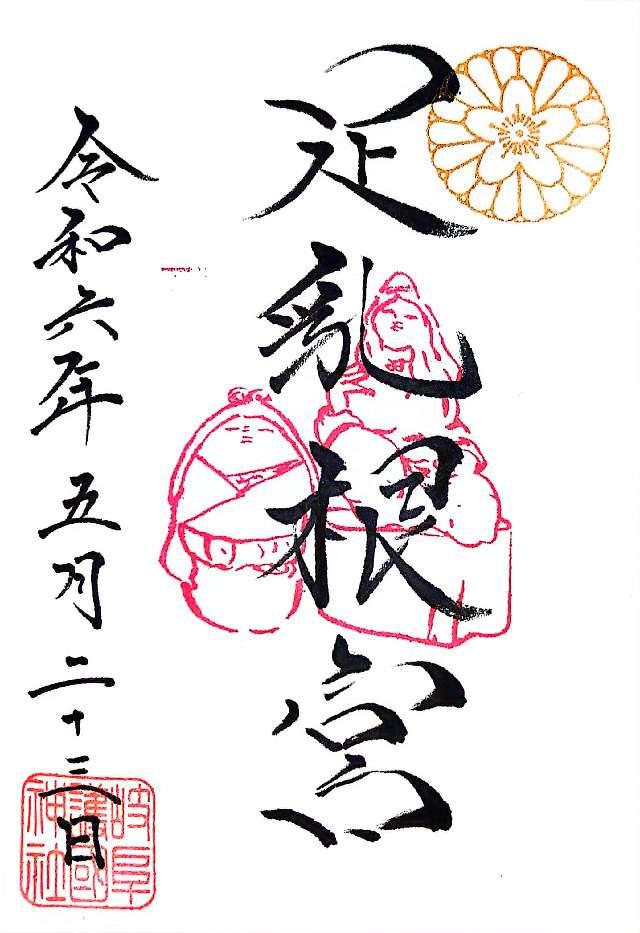 足乳根宮
令和六年五月二十三日
岐阜護國神社